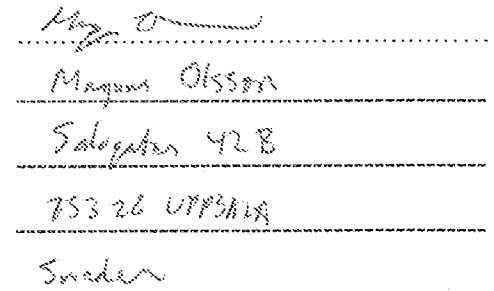 Magnus Olsson
Salagatan 42 B
753 26 UPPSALA
Sweden